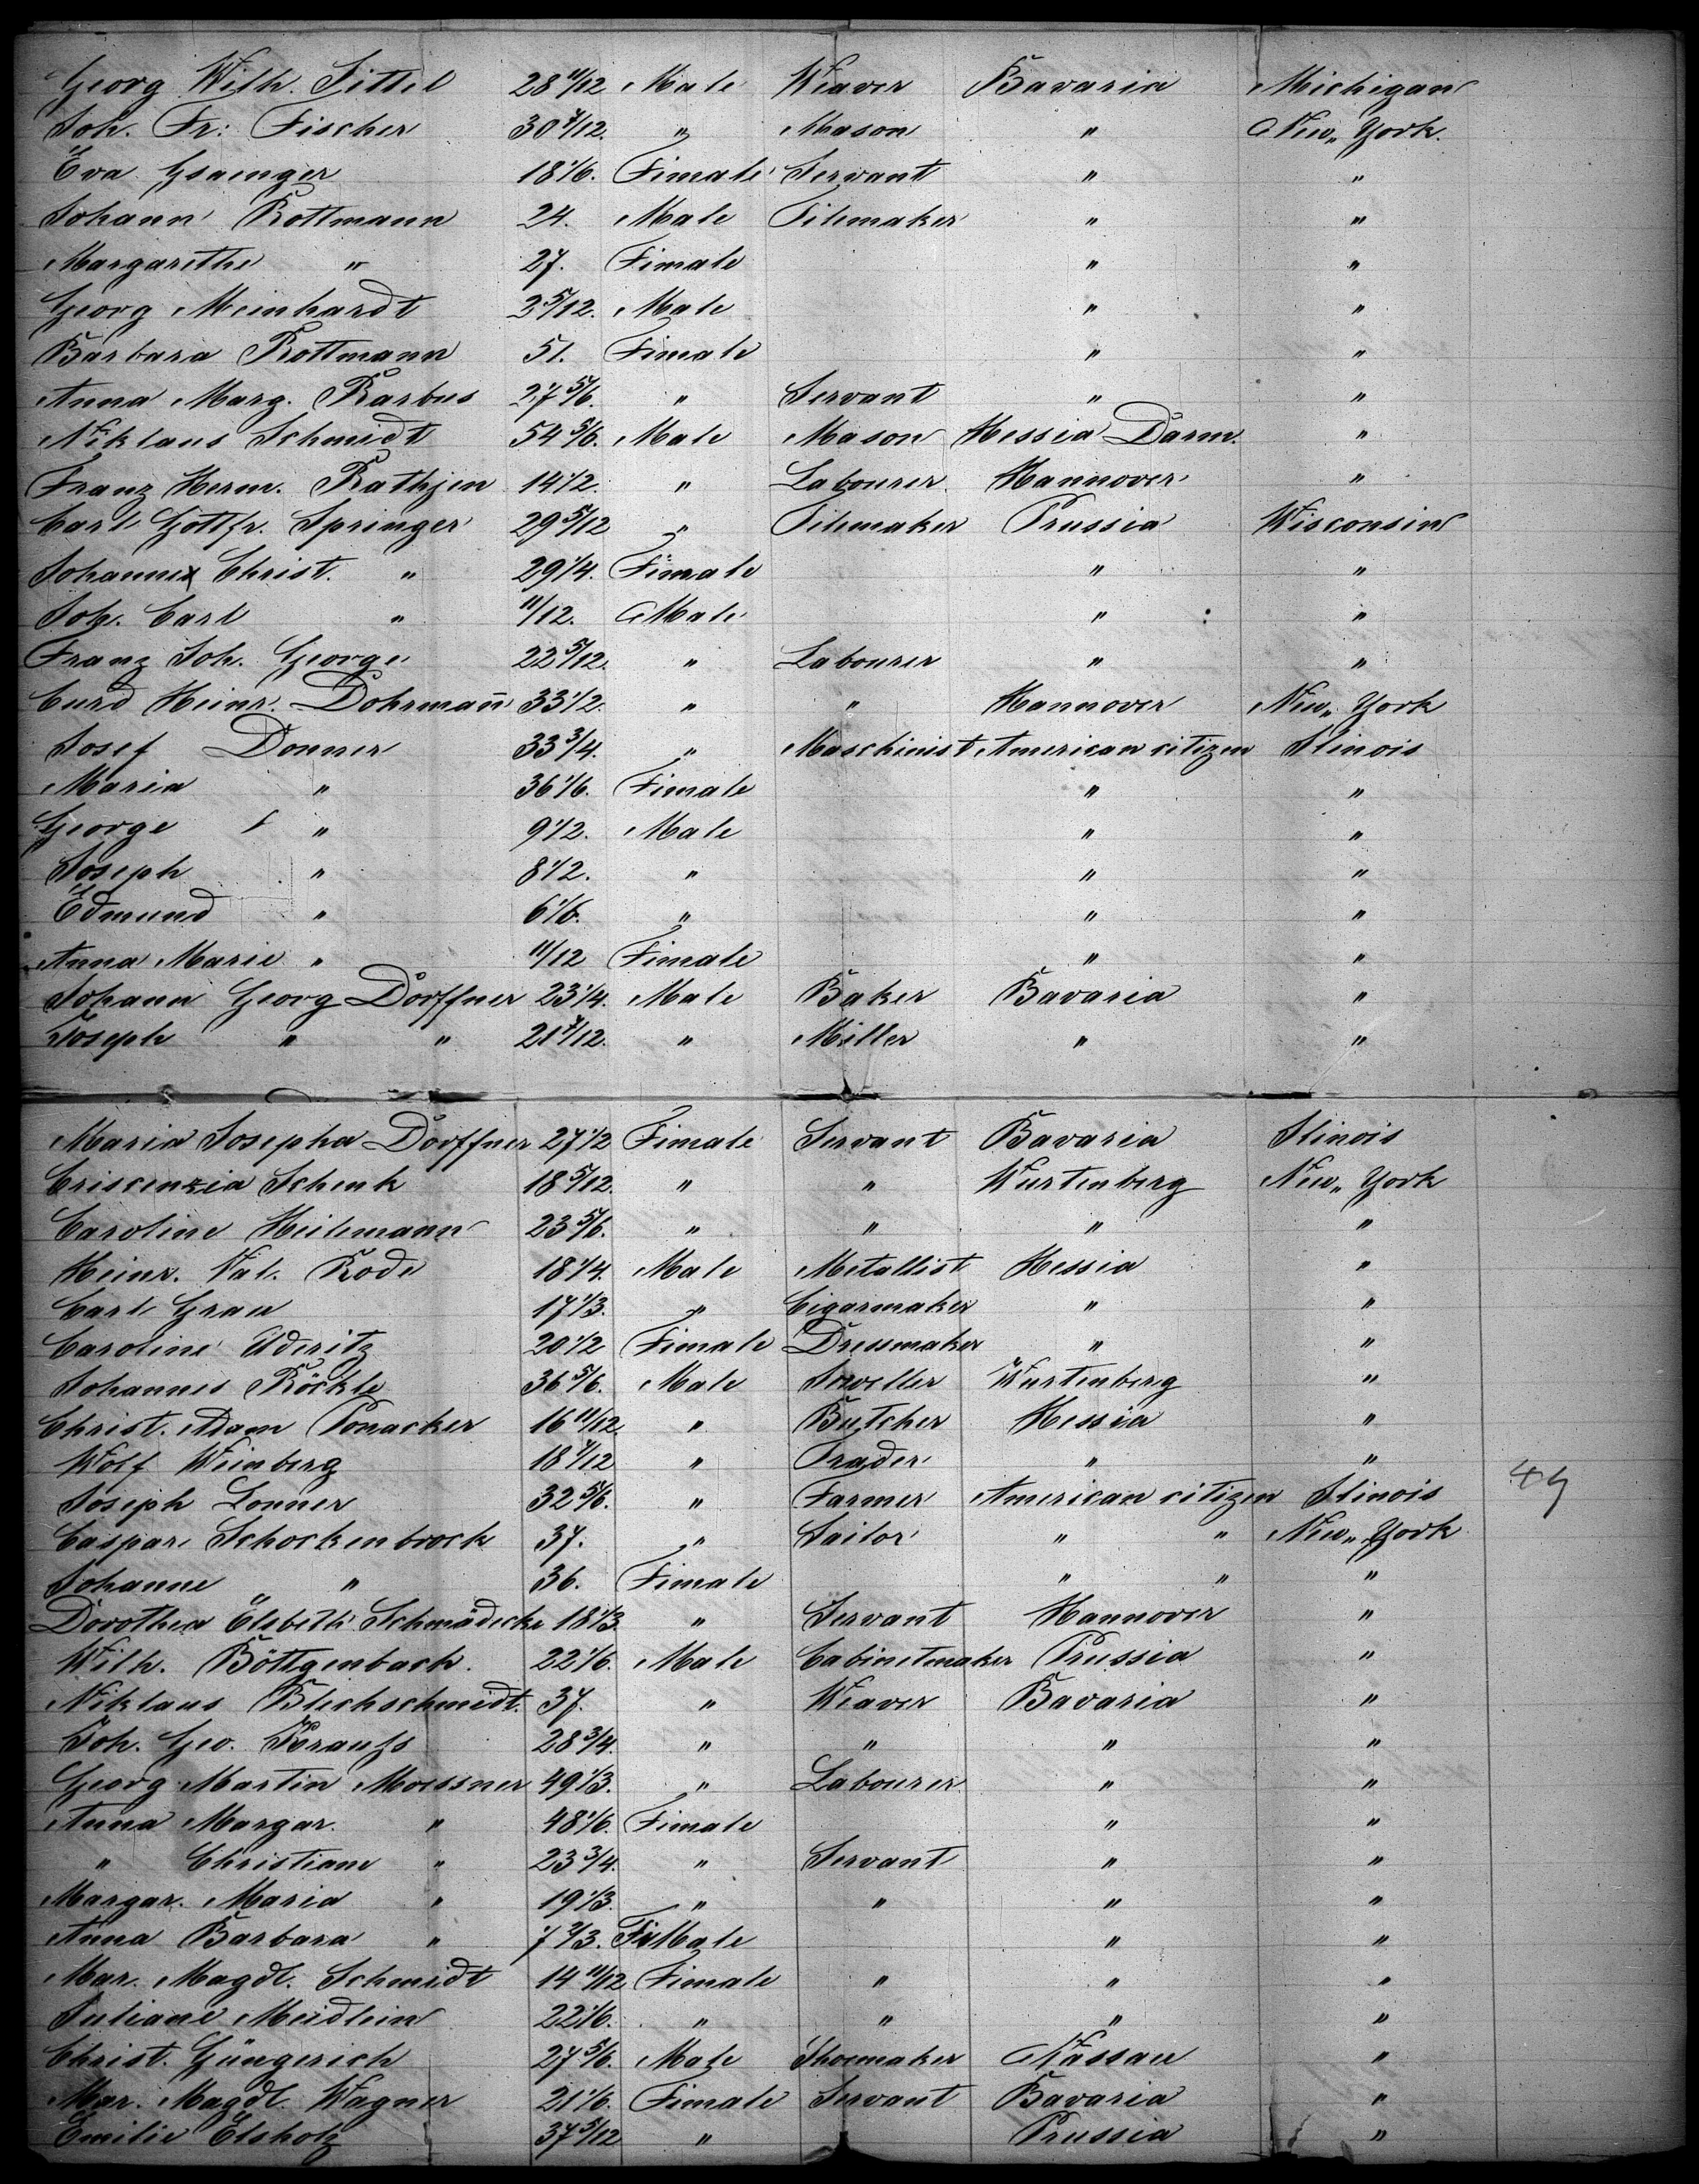 Georg Wilh. Sittel 28 11/12 Male Weaver Bavaria Michigan
Joh. Fr: Fischer 30 7/12. " Mason " New„ York.
Eva Gsaenger 18 1/6. Female Servant " "
Johann Rottmann 24. Male Filemaker " "
Margarethe " 27. Female " "
Georg Meinhardt 2 5/12. Male " "
Barbara Rottmann 51. Female " "
Anna Marg. Rarbus 27 5/6. " Servant " "
Niklaus Schmidt 54 5/6. Male Mason Hessia Darm. "
Franz Herm. Rathjen 14 1/2. " Labourer Hannover "
Carl Gottfr. Springer 29 5/12 " Filemaker Prussia Wisconsin
Johanne Christ. " 29 1/4. Female " "
Joh. Carl " 11/12. Male " "
Franz Joh. George 22 5/12. " Labourer " "
Curd Heinr. Dohrmañ 33 1/2. " " Hannover New„ York
Josef Donner 33 3/4. " Maschinist American citizen Ilinois
Maria " 36 1/6. Female " "
George " 9 1/2. Male " "
Joseph " 8 1/2. " " "
Edmund " 6 1/6. " " "
Anna Marie " 11/12 Female " "
Johann Georg Dorffner 23 1/4. Male Baker Bavaria "
Joseph " " 21 7/12. " Miller " "
Maria Josepha Dorffner 27 1/2 Female Servant Bavaria Ilinois
Criscenzia Schenk 18 5/12. " " Wurtenberg New„ York
Caroline Heilemann 23 5/6. " " " "
Heinr. Val. Rode 18 1/4. Male Metallist Hessia "
Carl Grau 17 1/3. " Cigarmaker " "
Caroline Uderitz 20 1/2 Female Dressmaker " "
Johannes Röckle 36 5/6. Male Joweller Wurtenberg "
Christ. Adam Ponacker 16 11/12 " Butcher Hessia "
Wolf Weinberg 18 7/12 " Trader " "
Joseph Lonner 32 5/6. " Farmer American citizen Ilinois
Caspar Schockenbrock 37. " Tailor " " New„ York
Johanne " 36. Female " " "
Dorothea Elsbeth Schmädecke 18 1/3 " Servant Hannover "
Wilh. Böttgenbach. 22 1/6. Male Cabinetmaker Prussia "
Niklaus Blechschmidt. 37. " Weaver Bavaria "
Joh. Geo. Krauſs 28 3/4. " " " "
Georg Martin Moessner 49 1/3. " Labourer " "
Anna Margar. " 48 1/6. Female " "
" Christiane " 23 3/4. " Servant " "
Margar. Maria " 19 1/3. " " " "
Anna Barbara " 7 2/3. FeMale " "
Mar. Magdl. Schmidt 14 11/12 Female " " "
Juliane Meidlein 22 1/6. " " " "
Christ. Güngerich 27 5/6. Male Shoemaker Nassau "
Mar. Magdl. Wagner 21 1/6. Female Servant Bavaria "
Emilie Elsholz 37 5/12 " Prussia "